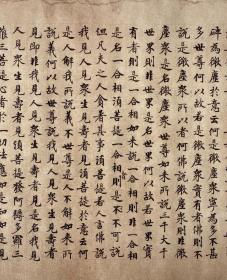 碎為微塵於意云何是微塵眾寧為多不甚
多世尊何以故若是微塵眾實有者佛則不
說是微塵眾所以者何佛說微塵眾則非微
塵眾是名微塵眾世尊如來所說三千大千
世界則非世界是名世界何以故若世界實
有者則是一合相如來說一合相則非一合相
是名一合相須菩提一合相者則是不可說
但凡夫之人貪著其事須菩提若人言佛說
我見人見眾生見壽者見須菩提於意云何
是人解我所說義不世尊是人不解如來所
說義何以故世尊說我見人見眾生見壽者
見即非我見人見眾生見壽者見是名我見
人見眾生見壽者見須菩提發阿耨多羅三
藐三菩提心者於一切法應如是知如是見